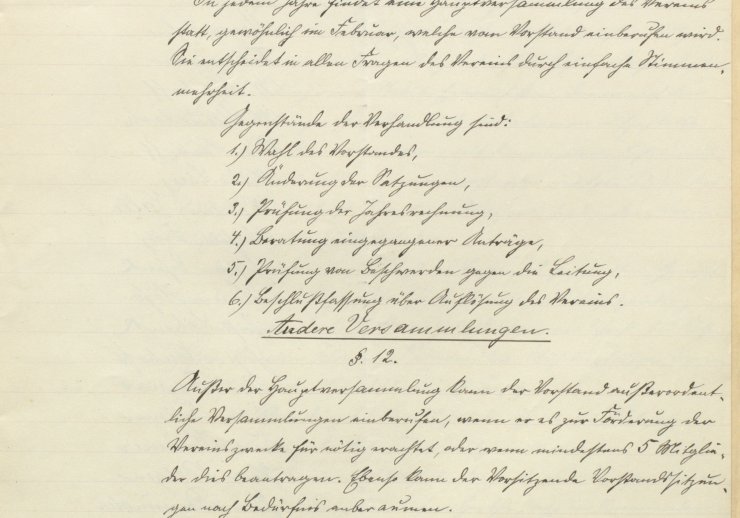 In jedem Jahre findet eine Hauptversammlung des Vereins
statt, gewöhnlich im Februar, welche vom Vorstand einberufen wird.
Sie entscheidet in allen Fragen des Vereins durch einfache Stimmen-
mehrheit.
Gegenstände der Verhandlung sind:
1.) Wahl des Vorstandes,
2.) Änderung der Satzungen,
3.) Prüfung der Jahresrechnung,
4.) Beratung eingegangener Anträge,
5.) Prüfung von Beschwerden gegen die Leitung,
6.) Beschlußfassung über Auflösung des Vereins.
Andere Versammlungen.
§. 12.
Außer der Hauptversammlung kann der Vorstand außerordent-
liche Versammlungen einberufen, wenn er es zur Förderung der
Vereinszwecke für nötig erachtet, oder wenn mindestens 5 Mitglie-
der dies beantragen. Ebenso kann der Vorsitzende Vorstandssitzun-
gen nach Bedürfnis anberaumen.